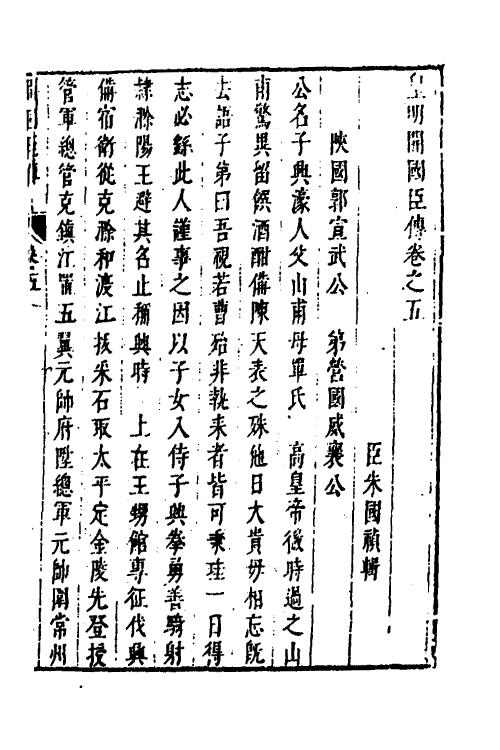 皇明開國臣傳卷之五
臣朱國禎輯
陝國郭宣武公　弟營國威襄公
公名子興濠人父山甫母單氏　高皇帝微時過之山
甫驚異留饌酒酣備陳天表之殊他日大貴毋相忘旣
去語子弟曰吾視若曹殆非執耒者皆可秉珪一日得
志必繇此人謹事之因以子女入侍子興拳勇善騎射
隸滁陽王避其名止稱興時　上在王甥館專征伐興
備宿衛從克滁和渡江拔采石取太平定金陵先登授
管軍總管克鎮江置五翼元帥府陞總軍元帥圍常州